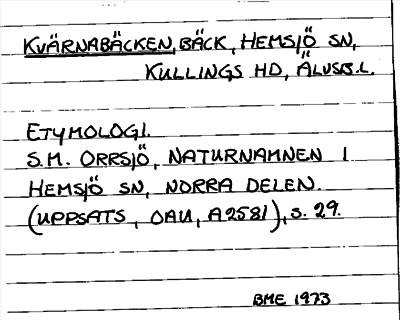 KVÄRNABÄCKEN, BÄCK, HEMSJÖ SN,
KULLINGS HD, ÄLVSB.L.
ETYMOLOGI.
S.M. ORRSJÖ, NATURNAMNEN I
HEMSJÖ SN, NORRA DELEN.
(UPPSATS, OAU, A2581), S. 29.
BME 1973